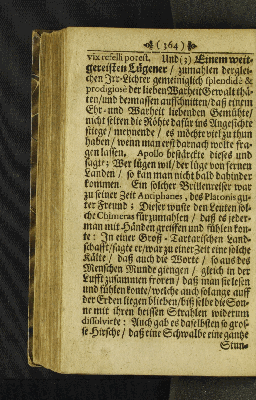 (364)
vix refelli potest. Und (3) Einem weit-
gereisten Lügener / zumahlen derglei-
chen Irr-Lichter gemeiniglich splendidè &
prodigiosè der lieben Warheit Gewalt thä-
ten / und dermassen aufschnitten / daß einem
Ehr- und Warheit liebenden Gemühte /
nicht selten die Röhte dafür ins Angesichte
stiege / meynende / es möchte viel zu thun
haben / wenn man erst darnach wolte fra-
gen lassen. Apollo bestärcte dieses und
sagte: Wer lügen wil / der lüge von fernen
Landen / so kan man nicht bald dahinder
kommen. Ein solcher Brillenreiser war
zu seiner Zeit Antiphanes, des Platonis gu-
ter Freund; Dieser wuste den Leuten sol-
che Chimeras fürzumahlen / daß es jeder-
man mit Händen greiffen und fühlen kon-
te: In einer Groß-Tartarischen Land-
schafft / sagte er / war zu einer Zeit eine solche
Kälte / daß auch die Worte / so aus des
Menschen Munde giengen / gleich in der
Lufft zusammen froren / daß man sie sehen
und fühlen konte / welche auch so lange auff
der Erden liegen blieben / biß selbe die Son-
ne mit ihren heissen Strahlen widerum
dissolvirte: Auch gab es daselbsten so gros-
se Hirsche / daß eine Schwalbe eine gantze
Stun-